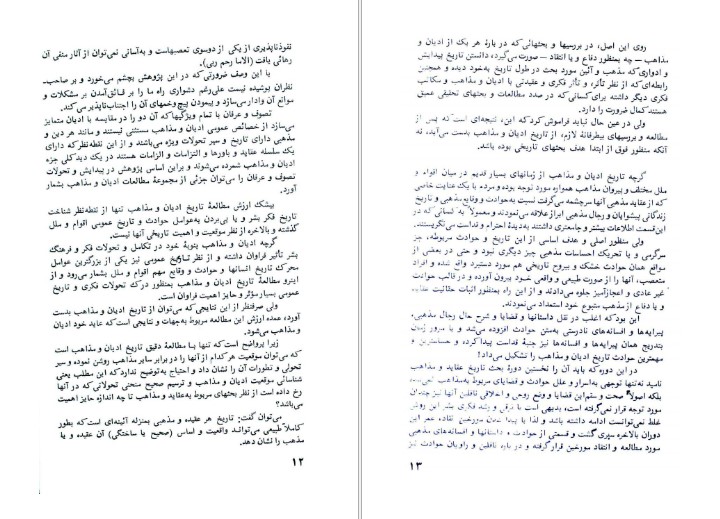 نفوذناپذیری از یکی از دوسوی تعصبهاست و به‌آسانی نمی‌توان از آثار منفی آن
رهائی یافت (الاما رحم ربی).
با این وصف ضرورتی که در این پژوهش بچشم می‌خورد و بر صاحب‌ـ
نظران پوشیده نیست علی‌رغم دشواری راه ما را بر فائق‌آمدن بر مشکلات و
موانع آن وادار می‌سازد و پیمودن پیچ‌وخمهای آن را اجتناب‌ناپذیر می‌کند.
تصوف و عرفان با تمام ویژگیها که آن دو را در مقایسه با ادیان متمایز
می‌سازد از خصائص عمومی ادیان و مذاهب مستثنی نیستند و مانند هر دین و
مذهبی دارای تاریخ و سیر تحولات ویژه می‌باشند و از این نقطه‌نظر که دارای
یک سلسله عقاید و باورها و التزامات و الزامات هستند در یک دید کلی جزء
ادیان و مذاهب شمرده می‌شوند و براین اساس پژوهش در پیدایش و تحولات
تصوف و عرفان را می‌توان جزئی از مجموعهٔ مطالعات ادیان و مذاهب بشمار
آورد.
بیشک ارزش مطالعهٔ تاریخ ادیان و مذاهب تنها از نقطه‌نظر شناخت
تاریخ فکر بشر و یا پی‌بردن به‌عوامل حوادث و تاریخ عمومی اقوام و ملل
گذشته و بالاخره از نظر موقعیت و اهمیت تاریخی آنها نیست.
گرچه ادیان و مذاهب بنوبهٔ خود در تکامل و تحولات فکر و فرهنگ
بشر تأثیر فراوان داشته و از نظر تاریخ عمومی نیز یکی از بزرگترین عوامل
محرک تاریخ انسانها و حوادث و وقایع مهم اقوام و ملل بشمار می‌رود و از
اینرو مطالعهٔ تاریخ ادیان و مذاهب بمنظور درک تحولات فکری و تاریخ
عمومی بسیار مؤثر و حایز اهمیت فراوان است.
ولی صرفنظر از این نتایجی که می‌توان از تاریخ ادیان و مذاهب بدست
آورد، عمده ارزش این مطالعه مربوط به‌جهات و نتایجی است که عاید خود ادیان
و مذاهب می‌شود.
زیرا پرواضح است که تنها با مطالعهٔ دقیق تاریخ ادیان و مذاهب است
که می‌توان موقعیت هرکدام از آنها را در برابر سایر مذاهب روشن نموده و سیر
تحولی و تطورات آن را نشان داد و احتیاج به‌توضیح ندارد که این مطلب یعنی
شناسائی موقعیت ادیان و مذاهب و ترسیم صحیح منحنی تحولاتی که در آنها
رخ داده است از نظر بحثهای مربوط به‌عقاید و مذاهب تا چه اندازه حایز اهمیت
می‌باشد؟
می‌توان گفت: تاریخ هر عقیده و مذهبی بمنزله آئینه‌ای است که بطور
کاملاً طبیعی می‌تواند واقعیت و اساس (صحیح یا ساختگی) آن عقیده و یا
مذهب را نشان دهد.
۱۲
روی این اصل، در بررسیها و بحثهائی که در بارهٔ هر یک از ادیان و
مذاهب — چه بمنظور دفاع و یا انتقاد — صورت می‌گیرد دانستن تاریخ پیدایش
و ادواری که مذهب و آئین مورد بحث در طول تاریخ به‌خود دیده و همچنین
رابطه‌ای که از نظر تأثیر، و تأثر فکری و عقیدتی با ادیان و مذاهب و مکاتب
فکری دیگر داشته برای کسانی که در صدد مطالعات و بحثهای تحقیقی عمیق
هستند کمال ضرورت را دارد.
ولی در عین حال نباید فراموش کرد که این، نتیجه‌ای است که پس از
مطالعه و بررسیهای بیطرفانهٔ لازم، از تاریخ ادیان و مذاهب بدست می‌آید، نه
آنکه منظور فوق از ابتدا هدف بحثهای تاریخی بوده باشد.
گرچه تاریخ ادیان و مذاهب از زمانهای بسیار قدیم در میان اقوام و
ملل مختلف و پیروان مذاهب همواره مورد توجه بوده و مردم با یک عنایت خاصی
که از عقاید مذهبی آنها سرچشمه می‌گرفت نسبت به‌حوادث و وقایع مذهبی و تاریخ
زندگانی پیشوایان و رجال مذهبی ابراز علاقه می‌نمودند و معمولاً به کسانی که در
این قسمت اطلاعات بیشتر و جامعتری داشتند به‌دیدهٔ احترام و قداست می‌نگریستند.
ولی منظور اصلی و هدف اساسی از این تاریخ و حوادث مربوطه، جز
سرگرمی و یا تحریک احساسات مذهبی چیز دیگری نبود و حتی در بعضی از
مواقع همان حوادث خشک و بیروح تاریخی هم مورد دستبرد واقع شده و افراد
متعصب، آنها را از صورت طبیعی و واقعی خود بیرون آورده و در قالب حوادث
غیر عادی و اعجازآمیز جلوه می‌دادند و از این راه بمنظور اثبات حقانیت عقاید
و یا دفاع از مذهب متبوع خود استمداد می‌نمودند.
این بود که اغلب در نقل داستانها و قضایا و شرح حال رجال مذهبی،
پیرایه‌ها و افسانه‌های نادرستی به‌متن حوادث افزوده می‌شد و با مرور زمان
بتدریج همان پیرایه‌ها و افسانه‌ها نیز جنبهٔ قداست پیدا کرده و حساسترین و
مهمترین حوادث تاریخ ادیان و مذاهب را تشکیل می‌داد!
در این دوره که باید آن را نخستین دورهٔ بحث تاریخ عقاید و مذاهب
نامید نه‌تنها توجهی به‌اسرار و علل حوادث و قضایای مربوط به‌مذاهب نمی‌شد،
بلکه اصولاً صحت و سقم این قضایا و وضع روحی و اخلاقی ناقلین آنها نیز چندان
مورد توجه قرار نمی‌گرفته است، بدیهی است با ترقی و رشد فکری بشر این روش
غلط نمی‌توانست ادامه داشته باشد و لذا با پیدا شدن مورخین نقاد عمر این
دوران بالاخره سپری گشت و قسمتی از حوادث و داستانها و افسانه‌های مذهبی
مورد مطالعه و انتقاد مورخین قرار گرفته و در باره ناقلین و راویان حوادث نیز
۱۳